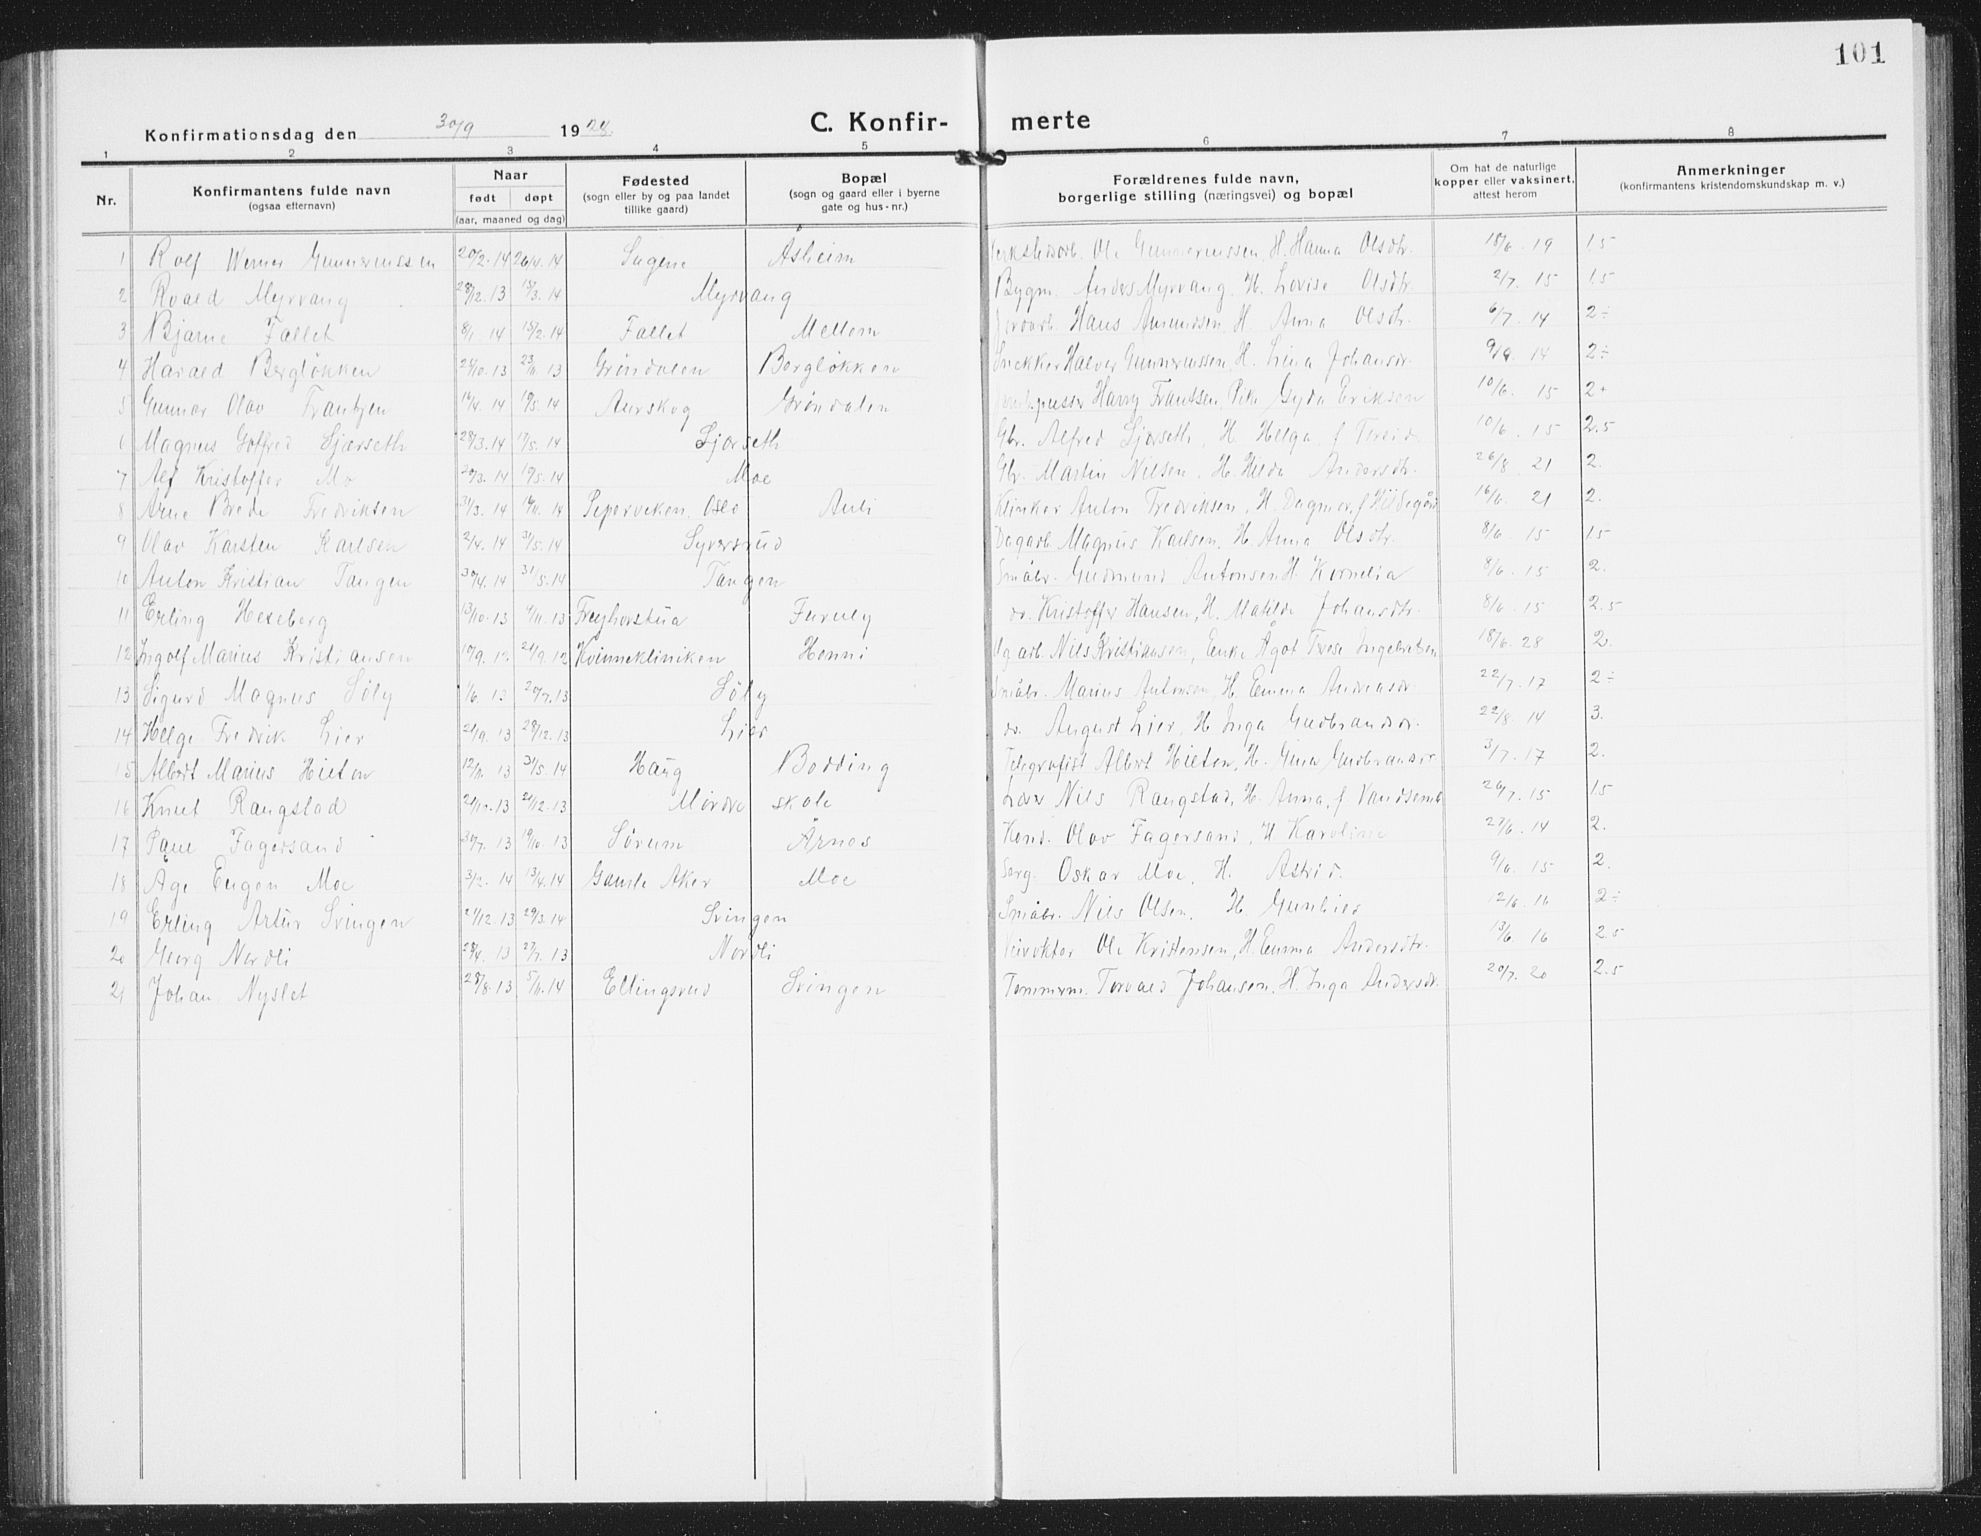 101
Konfirmationsdag den 30/9 1928.
C. Konfir- merte
1 2 3 4 5 6 7 8
Nr.
Konfirmantens fulde navn
(ogsaa efternavn)
Naar
født døpt
(aar, maaned og dag)
Fødested
(sogn eller by og paa landet
tillike gaard)
Bopæl
(sogn og gaard eller i byerne
gate og hus-nr.)
Forældrenes fulde navn,
borgerlige stilling (næringsvei) og bopæl
Om hat de naturlige
kopper eller vaksinert,
attest herom
Anmerkninger
(konfirmantens kristendomskundskap m. v.)
1 Rolf Werner Gunnerussen 20/2.14 26/4.14 Sagene Åsheim Ole Gunnerussen, H. Hanna Olsdtr. 18/6.19 1.5
2 Roald Myrvang 28/12.13 15/3.14 Myrvang Bygm. Anders Myrvang, H. Lovise Olsdtr. 2/7.15 1.5
3 Bjarne Fallet 8/1.14 15/2.14 Fallet Mellem Hans Amundsen H. Anna Olsdtr. 6/7.14 2÷
4 Harald Bergløkken 24/10.13 23/11.13 Grøndalen Bergløkken Snekker Halvor Gunnerussen, H. Lina Johansdr. 14 2÷
5 Gunnar Olav Frantzen 14/4.14 19/5.14 Aurskog Grøndalen Harry Frantsen, Pike Gyda Eriksen 10/6.15 2+
6 Magnus Gotfred Ljørseth 28/3.14 17/5.14 Ljørseth Gbr. Alfred Ljørseth, H. Helga f. 10/6.15 2.5
7 Alf Kristoffer Mo 20/3.14 19/5.14 Moe Gbr. Martin Nilsen, H. Hilda Andersdtr. 26/8.21 2.
8 Arne Brede Fredriksen 31/3.14 14 Piperveken, Oslo Auli Klinker Anton Fredriksen, H. Dagmar, f. 16/6.21 2.
9 Olav Karsten Karlsen 2/4.14 31/5.14 Syversrud Dagarb. Magnus Karlsen, H. Anna Olsdtr. 8/6.15 1.5
10 Anton Kristian Tangen 30/4.14 31/5.14 Tangen Småbr. Gudmund Antonsen H. Kornelia 8/6.15 2.
11 Erling Hexeberg 13/10.13 9/11.13 Freyhovstua Furuly do. Kristoffer Hansen, H. Matilde Johansdtr. 8/6.15 2.5
12 Ingolf Marius Kristiansen 10/9.12 21/9.12 Kvinneklinikken Henni Nils Kristiansen, Enke Ågot Ingebretsen 18/6.28 2.
13 Sigurd Magnus Søly 1/6.13 20/7.13 Søly Småbr. Marius Antonsen, H. Emma Andreasdr. 22/7.17 2÷
14 Helge Fredrik Lier 21/9.13 28/12.13 Lier do. August Lier, H. Inga Gudbrandsdr. 22/8.14 3.
15 Albert Marius Hieton 12/11.13 31/5.14 Haug Bodding Telegrafist Albert Hieton, H. Gina Gudbransdr 3/7.17 2.
16 Knut Rangstad 21/12.13 Mørdre skole Lærer Nils Rangstad, H. Anna, f. 26/7.15 1.5
17 Paul Fagersand 30/7.13 19/10.13 Sørum Årnes Kond. Olav Fagersand, H. Karoline 27/6.14 2.
18 Åge Eugen Moe 3/2.14 13/4.14 Gamle Aker Moe Oskar Moe, H. Astrid. 9/6.15 2.
19 Erling Artur Svingen 21/12.13 29/3.14 Svingen Småbr. Nils Olsen, H. Gunhild 12/6.16 2÷
20 Georg Nordli 28/4.13 27/7.13 Nordli Ole Kristensen, H. Emma Andersdtr. 13/6.16 2.5
21 Johan Nyslet 28/8.13 5/4.14 Ellingsrud Svingen Tømmerm. Torvald Johansen, H. Inga Andersdr. 20/7.20 2.5